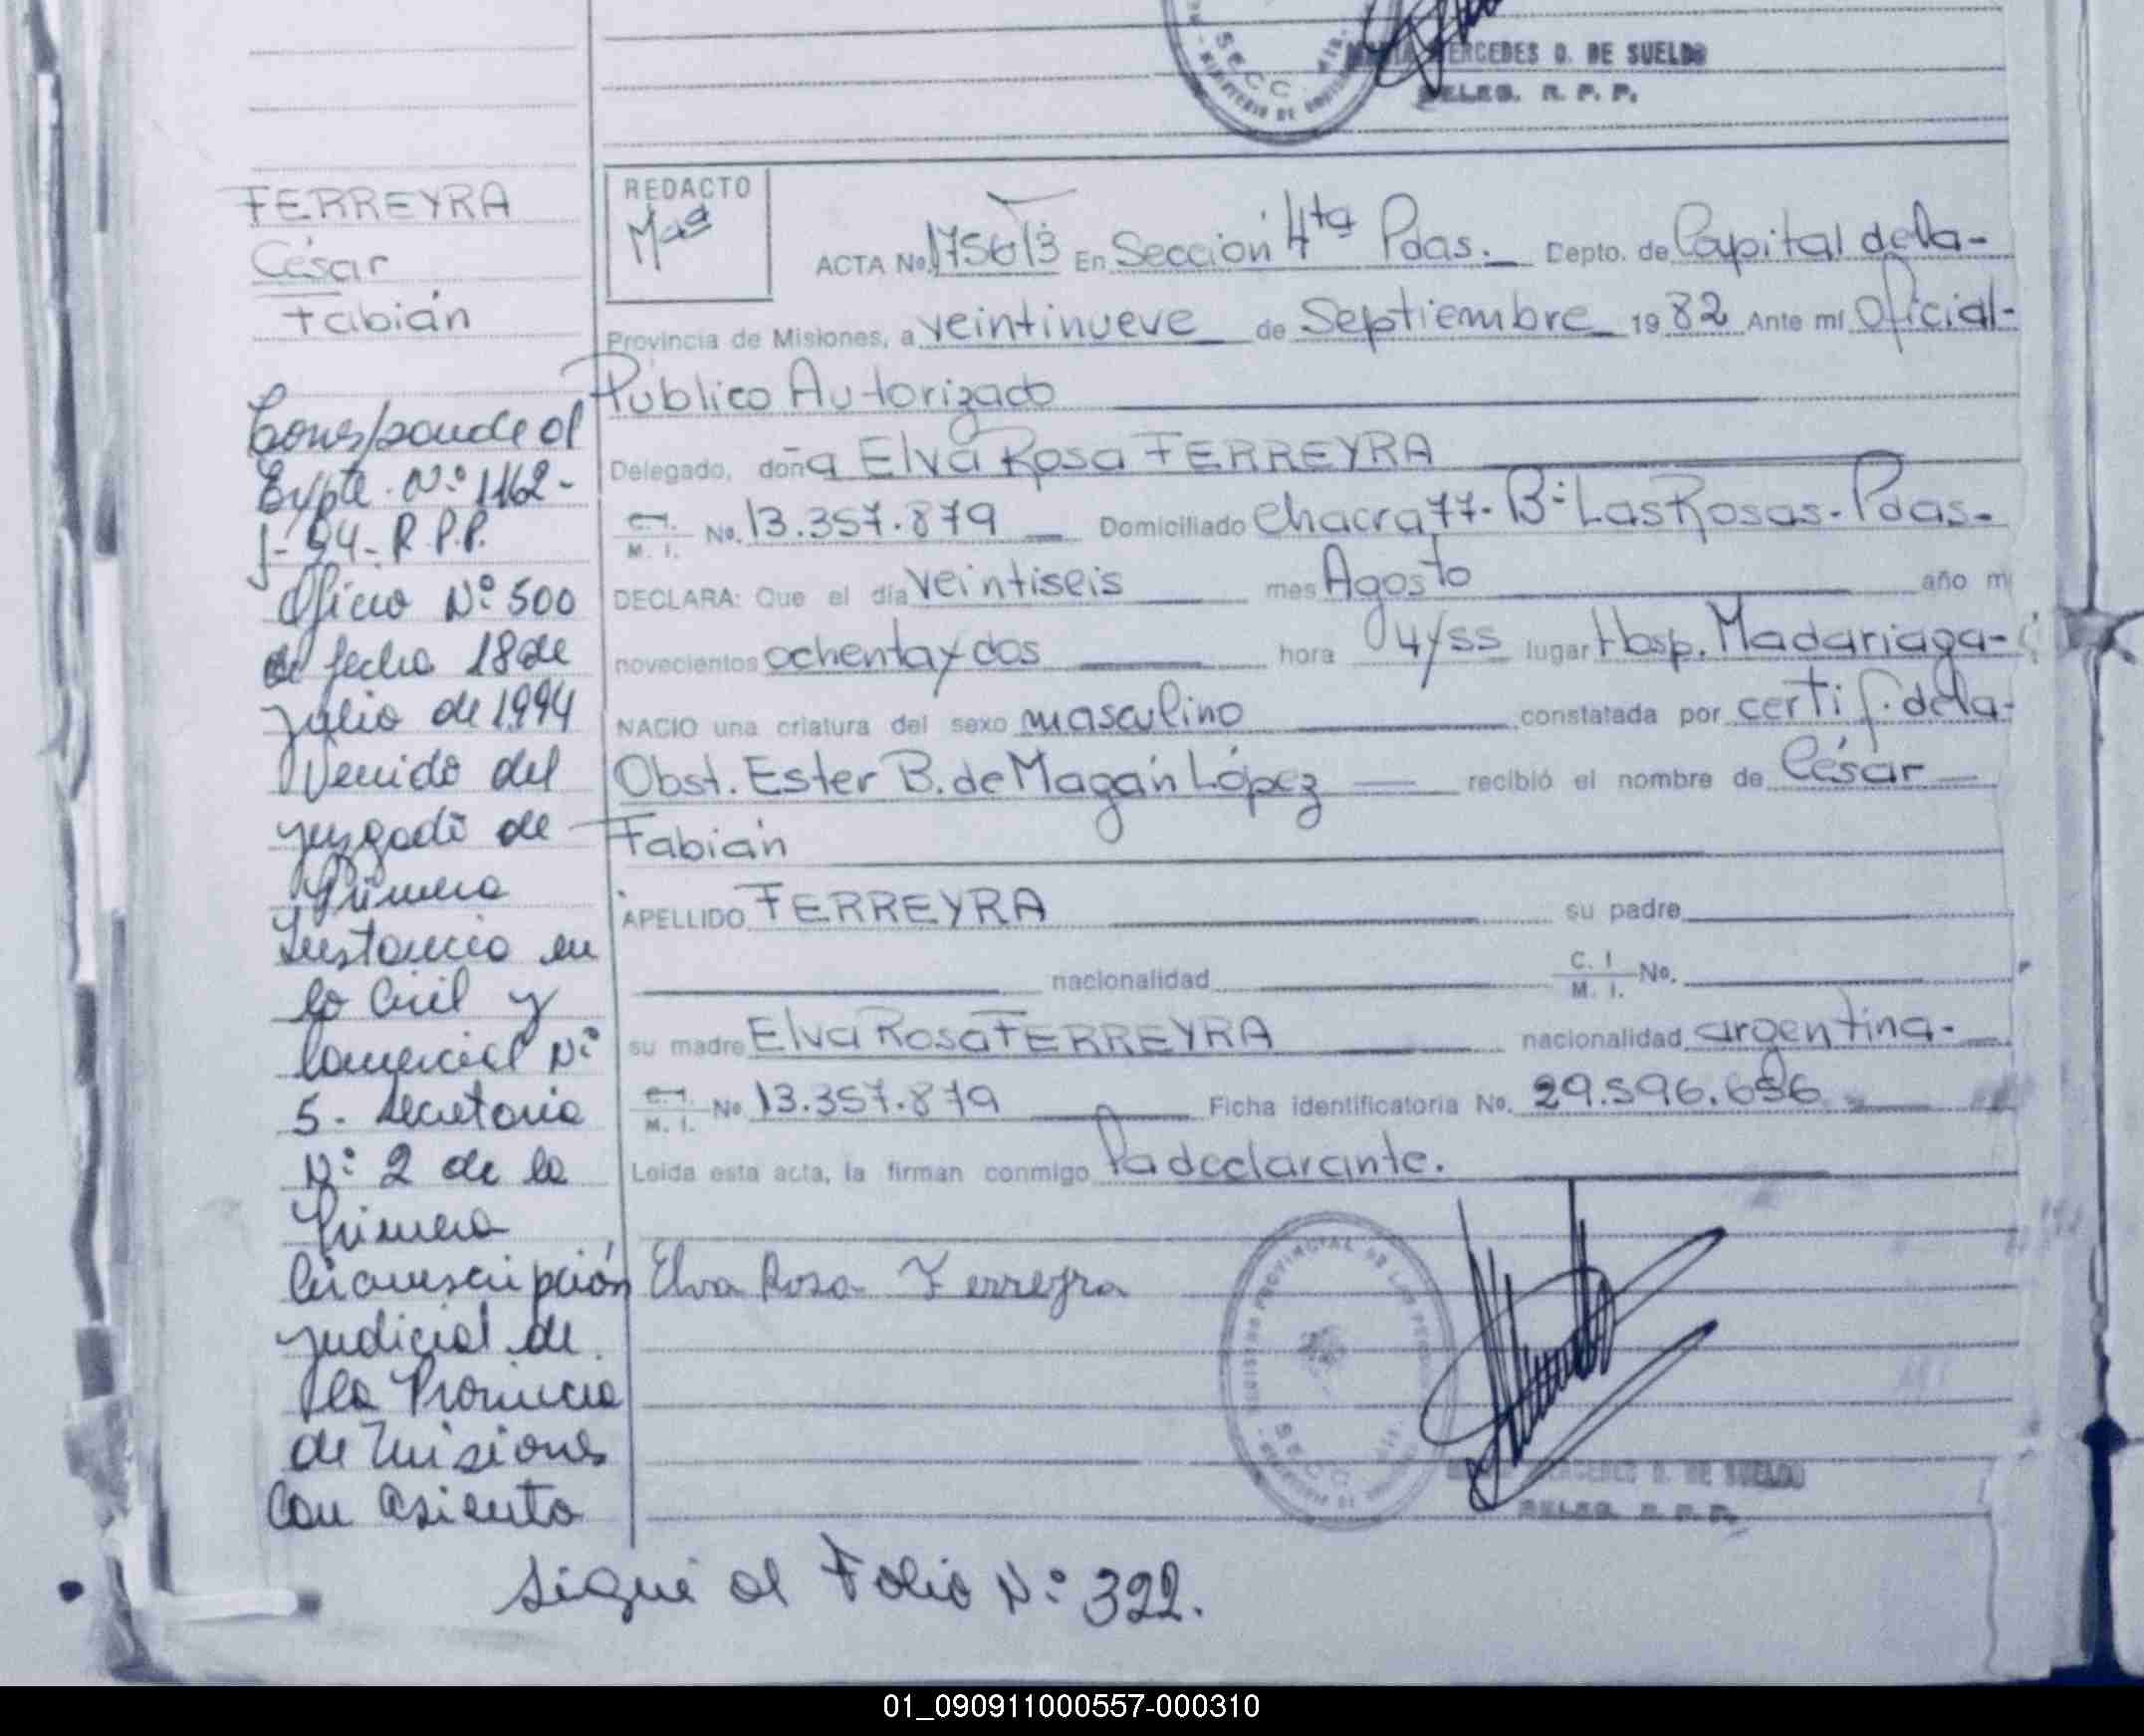 MERCEDES O. DE SUELDO
DELEG. R. P. P.
SECC. 4ta.
FERREYRA
César
Fabián
Corresponde al
Expte. Nº 1162-
J-94-R.P.P.
Oficio Nº 500
de fecha 18 de
julio de 1994
Venido del
juzgado de
Primera
Instancia en
lo Civil y
Comercial Nº
5. Secretaria
Nº 2 de la
Primera
Circunscripción
judicial de
la Provincia
de Misiones
con asiento
REDACTO
ACTA No. 175613 En Sección 4ta Pdas. Depto. de Capital de la-
Provincia de Misiones, a veintinueve de Septiembre 19 82 Ante mí Oficial-
Público Autorizado
Delegado, doña Elva Rosa FERREYRA
C.I. M. I. No. 13.357.879 Domiciliado Chacra 77- Bº Las Rosas- Pdas-
DECLARA: Que el día veintiseis mes Agosto año m
novecientos ochenta y dos hora 04/55 lugar Hosp. Madariaga-
NACIO una criatura del sexo masculino constatada por certif. de la-
Obst. Ester B. de Magán López recibió el nombre de César
Fabián
APELLIDO FERREYRA su padre
nacionalidad C. I M. I. No.
su madre Elva Rosa FERREYRA nacionalidad argentina-
C.I. M. I. No 13.357.879 Ficha identificatoria No. 29.596.656
Leida esta acta, la firman conmigo la declarante.
Elva Rosa Ferreyra
REGISTRO PROVINCIAL DE LAS PERSONAS
SECC. 4ta.
MERCEDES O. DE SUELDO
DELEG. R. P. P.
Sigue al Folio Nº 322.
01_090911000557-000310